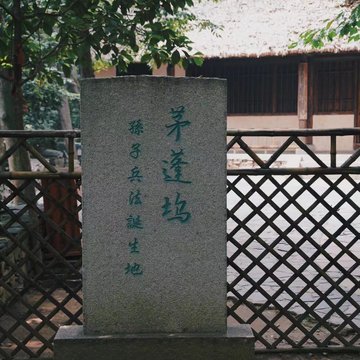 茅蓬塢
孫子兵法誕生地